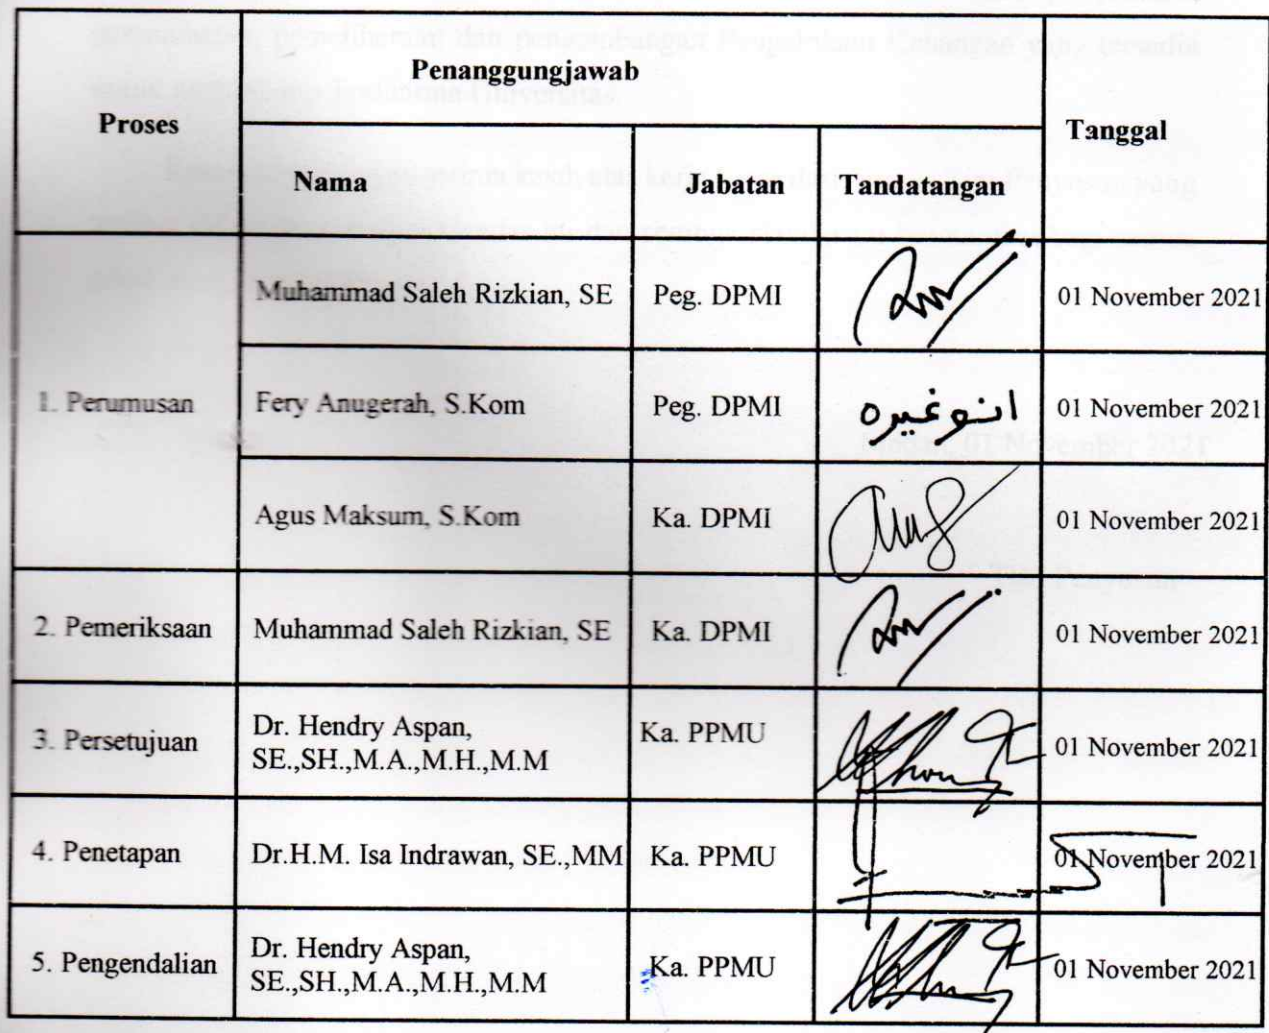 Proses
Penanggungjawab
Tanggal
Nama
Jabatan
Tandatangan
1. Perumusan
Muhammad Saleh Rizkian, SE
Peg. DPMI
01 November 2021
Fery Anugerah, S.Kom
Peg. DPMI
01 November 2021
Agus Maksum, S.Kom
Ka. DPMI
01 November 2021
2. Pemeriksaan
Muhammad Saleh Rizkian, SE
Ka. DPMI
01 November 2021
3. Persetujuan
Dr. Hendry Aspan,
SE.,SH.,M.A.,M.H.,M.M
Ka. PPMU
01 November 2021
4. Penetapan
Dr.H.M. Isa Indrawan, SE.,MM
Ka. PPMU
01 November 2021
5. Pengendalian
Dr. Hendry Aspan,
SE.,SH.,M.A.,M.H.,M.M
Ka. PPMU
01 November 2021